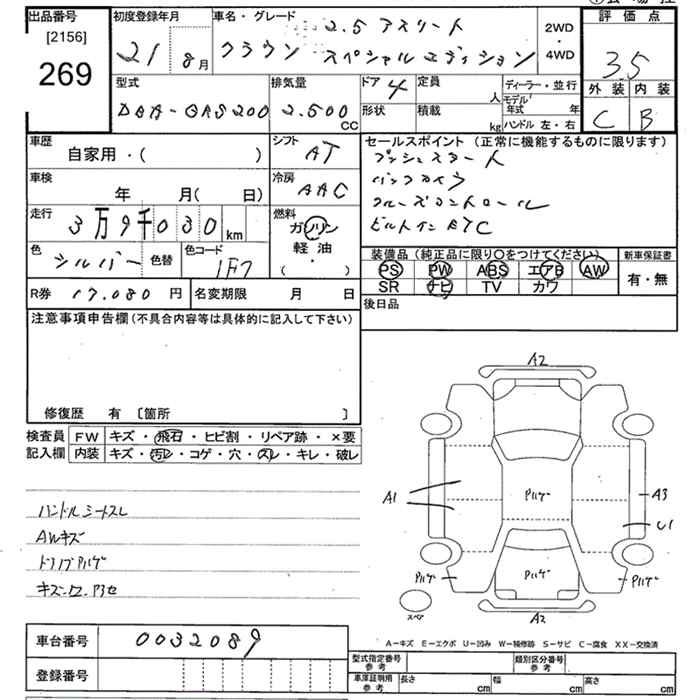 出品番号
[2156]
269
初度登録年月
21 8月
車名・グレード
2.5 アスリート
クラウン スペシャルエディション
2WD
・
4WD
評価点
3.5
外装 内装
C B
型式
DBA-GRS200
排気量
2.500
CC
ドア 4
定員
人
形状
積載
kg
ディーラー・並行
モデル
年式 年
ハンドル 左・右
車歴
自家用・( )
シフト
AT
車検
年 月( 日)
冷房
AAC
走行
3万9千030 km
燃料
ガソリン
軽・油
( ・ )
色
シルバー
色替
色コード
1F7
セールスポイント(正常に機能するものに限ります)
プッシュスタート
バックカメラ
クルーズコントロール
ビルトインETC
装備品(純正品に限り○をつけてください)
PS PW ABS エアB AW
SR ナビ TV カワ
新車保証書
有・無
R券 17.080 円
名変期限 月 日
後日品
注意事項申告欄(不具合内容等は具体的に記入して下さい)
修復歴 有 〔箇所 〕
検査員
記入欄
FW キズ・飛石・ヒビ割・リペア跡・×要
内装 キズ・汚レ・コゲ・穴・スレ・キレ・破レ
ハンドルシートスレ
AWキズ
A2
A1
A3
U1
Pハゲ
Pハゲ
Pハゲ
Pハゲ
スペア
A2
A-キズ E-エクボ U-凹み W-補修跡 S-サビ C-腐食 XX-交換済
車台番号 0032089
登録番号
型式指定番号
参考
類別区分番号
参考
車庫証明用
参考
長さ cm
幅 cm
高さ cm